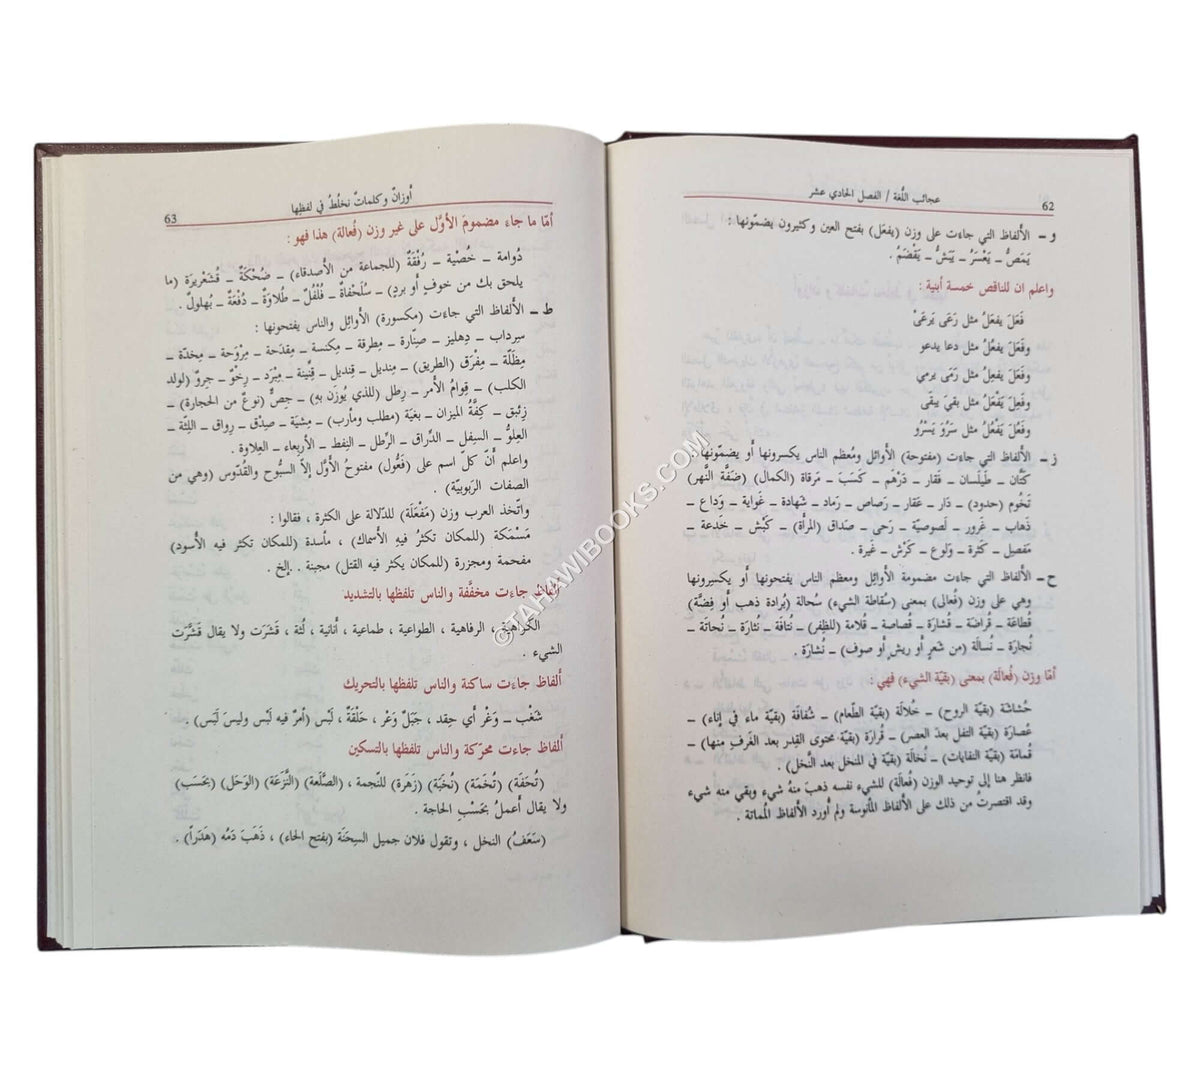 عجائب اللُّغة / الفصل الحادي عشر
62
و ــ الألفاظ التي جاءت على وزن (يفعَل) بفتح العين وكثيرون يضمّونها :
يَمَصُّ ــ يَعْسَرُ ــ يَبَشُّ ــ يَقْضَمُ .
واعلم ان للناقص خمسة أبنية :
فَعَلَ يفعَلُ مثل رَعَى يَرعَىْ
وفَعَلَ يفعُلُ مثل دعا يدعو
وفَعَلَ يفعِلُ مثل رَمَى يرمي
وفَعِلَ يَفْعَلُ مثل بقيَ يبقَى
وفَعُلَ يَفْعُلُ مثل سَرُوَ يَسْرُو
ز ــ الألفاظ التي جاءت (مفتوحة) الأوائل ومُعظم الناس يكسرونها أو يضمّونها :
كَتَّان ــ طَيلَسان ــ فَقار ــ دَرْهَم ــ كَسَبَ ــ مَرقاة (الكمال) (ضَفَّة النَّهر)
تَخُوم (حدود) ــ دَار ــ عَقار ــ رَصاص ــ رَماد ــ شَهادة ــ غَواية ــ وَداع ــ
ذَهاب ــ غَرور ــ لَصوصيّة ــ رَحى ــ صَداق (المرأة) ــ كَبْش ــ خَدعة ــ
مَفصِل ــ كَثْرة ــ وَلوع ــ كَرْش ــ غَيرة .
ح ــ الألفاظ التي جاءت مضمومة الأوائل ومعظم الناس يفتحونها أو يكسِرونها
وهي على وزن (فُعالى) بمعنى (سُقاطة الشيء) سُحالة (بُرادة ذهب أو فِضّة)
قُطاعَة ــ قُراضَة ــ قُشارَة ــ قُصاصة ــ قُلامة (للظفِر) ــ نُتافَة ــ نُثارَة ــ نُحاتَة ــ
نُجارَة ــ نُسالَة (من شَعرٍ أو ريش أو صوف) ــ نُشارَة .
أمّا وزن (فُعالَة) بمعنى (بقيّة الشيء) فهي :
حُشاشَة (بقية الروح) ــ خُلالَة (بقية الطّعام) ــ شُفافَة (بقيّة ماء في إناء) ــ
عُصارَة (بقية التفل بعدَ العصر) ــ قُرارَة (بقيّة محتوى القِدر بعد الغَرفِ منها) ــ
قُمامَة (بقيّة النفايات) ــ نُخالَة (بقيّة في المنخل بعد النَّخل) .
فانظر هنا إلى توحيد الوزن (فُعالَة) للشيء نفسه ذهبَ منهُ شيء وبقي منه شيء
وقد اقتصرتُ من ذلك على الألفاظ المأنوسة ولم أورد الألفاظ المُماتة .
أوزانٌ وكلماتٌ نخلُطُ في لفظِها
63
أمّا ما جاء مضمومَ الأوّل على غير وزن (فُعالة) هذا فهو :
دُوامة ــ خُصْية ــ رُفْقَةٌ (للجماعة من الأصدقاء) ــ ضُحْكَةٌ ــ قُشَعْرِيرَة (ما
يلحق بك من خوفٍ أو بردٍ) ــ سُلَحْفاةٌ ــ فُلْفُلٌ ــ طُلاوَةٌ ــ دُفْعَةٌ ــ بُهلولٌ .
ط ــ الألفاظ التي جاءت (مكسورة) الأوائل والناس يفتحونها :
سِرداب ــ دِهليز ــ صِنّارة ــ مِطرقة ــ مِكنسة ــ مِقدَحة ــ مِرْوَحة ــ مِخدّة ــ
مِظلّة ــ مِفْرَق (الطريق) ــ مِنديل ــ قِنديل ــ قِنّينة ــ مِبْرَد ــ رِخْوٌ ــ جروٌ (لولد
الكلب) ــ قِوامُ الأمر ــ رِطل (للذي يُوزَن بهِ) ــ جِصٌّ (نوعٌ من الحجارة) ــ
زِئبق ــ كِفَّةُ الميزان ــ بغيَة (مطلب ومأرب) ــ مِشيَة ــ صِدْق ــ رِواق ــ اللِثّة ــ
العِلوُّ ــ السِفِل ــ الدِّراق ــ الرِّطل ــ النِفط ــ الأربِعاء ــ العِلاوة .
واعلم أنّ كلّ اسم على (فَعُّول) مفتوحُ الأوّل إلاّ السبُّوح والقُدّوس (وهي من
الصفات الرَبوبيّة) .
واتّخذ العرب وزن (مَفْعَلَة) للدّلالة على الكثرة ، فقالوا :
مَسْمَكة (للمكان تكثرُ فيه الأسماك) ، مأسدة (للمكان تكثر فيه الأسود)
مفحمة ومجزرة (للمكان يكثر فيه القتل) مجبنة . ..إلخ .
ألفاظ جاءت مخفَّفة والناس تلفظها بالتشديد
الكراهية ، الرفاهية ، الطواعية ، طماعية ، أنانية ، لُثة ، قَشَرَت ولا يقال قَشَّرَت
الشيء .
ألفاظ جاءت ساكنة والناس تلفظها بالتحريك
شَغْب ــ وَغْر أي حِقد ، جَبَلٌ وَعْر ، حَلْقَةٌ ، لَبْس (أمرٌ فيه لَبْس وليسَ لَبَس) .
ألفاظ جاءت محرّكة والناس تلفظها بالتسكين
(تُحَفَة) (تُخَمَة) (نُخَبَة) (زهَرَة) للنّجمة ، (الصَّلَعة) (النَّزَعَة) (الوَحَل) (بحَسَب)
ولا يقال أعملُ بحَسْبِ الحاجة .
(سَعَفُ) النخل ، وتقول فلان جميل السيحَنَة (بفتح الحاء) ، ذَهَبَ دَمُه (هَدَراً) .
©TAHAWIBOOKS.COM